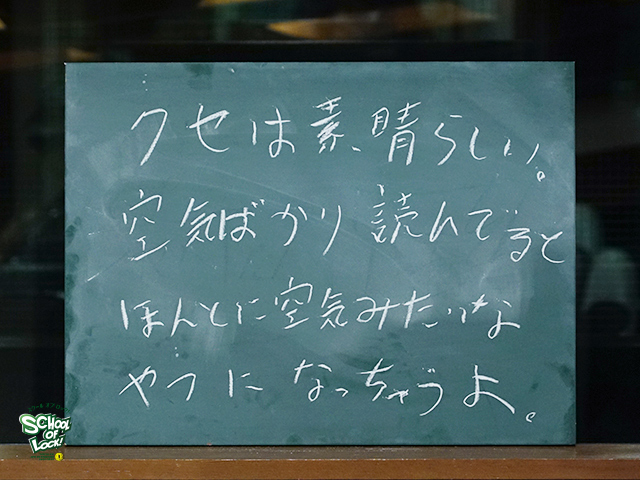 クセは素晴らしい。
空気ばかり読んでると
ほんとに空気みたいな
やつになっちゃうよ。
SCHOOL
OF
LOCK!